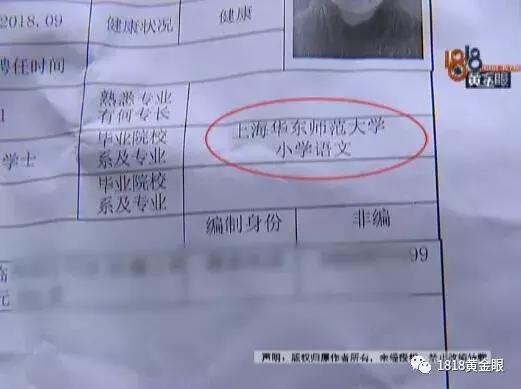 2018.09
健康状况
健康
聘任时间
1818
黄金眼
熟悉专业
有何专长
毕业院校
系及专业
上海华东师范大学
小学语文
学士
毕业院校
系及专业
编制身份
非编
99
元
声明：版权归原作者所有，未经授权，禁止改编转载
1818黄金眼